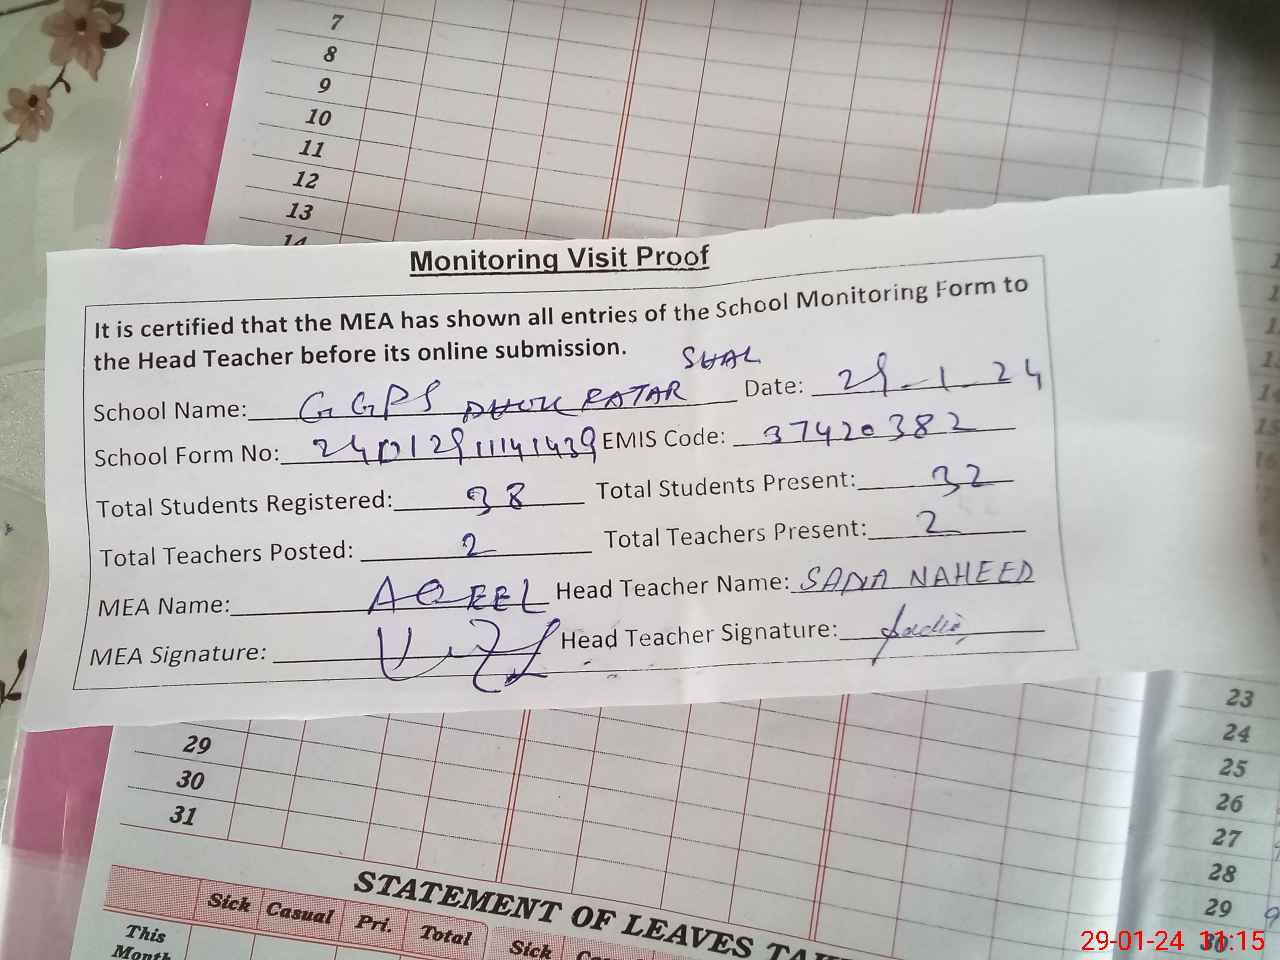 7
8
9
10
11
12
13
14
Monitoring Visit Proof
It is certified that the MEA has shown all entries of the School Monitoring Form to
the Head Teacher before its online submission.
School Name: GGPS DHOK RATAR SHAL Date: 29-1-24
School Form No: 240129111141439 EMIS Code: 37420382
Total Students Registered: 38 Total Students Present: 32
Total Teachers Posted: 2 Total Teachers Present: 2
MEA Name: AQEEL Head Teacher Name: SANA NAHEED
MEA Signature: Head Teacher Signature:
29
30
31
23
24
25
26
27
28
29
30
STATEMENT OF LEAVES
Sick Casual Pri. Total Sick
This
Month
29-01-24 11:15